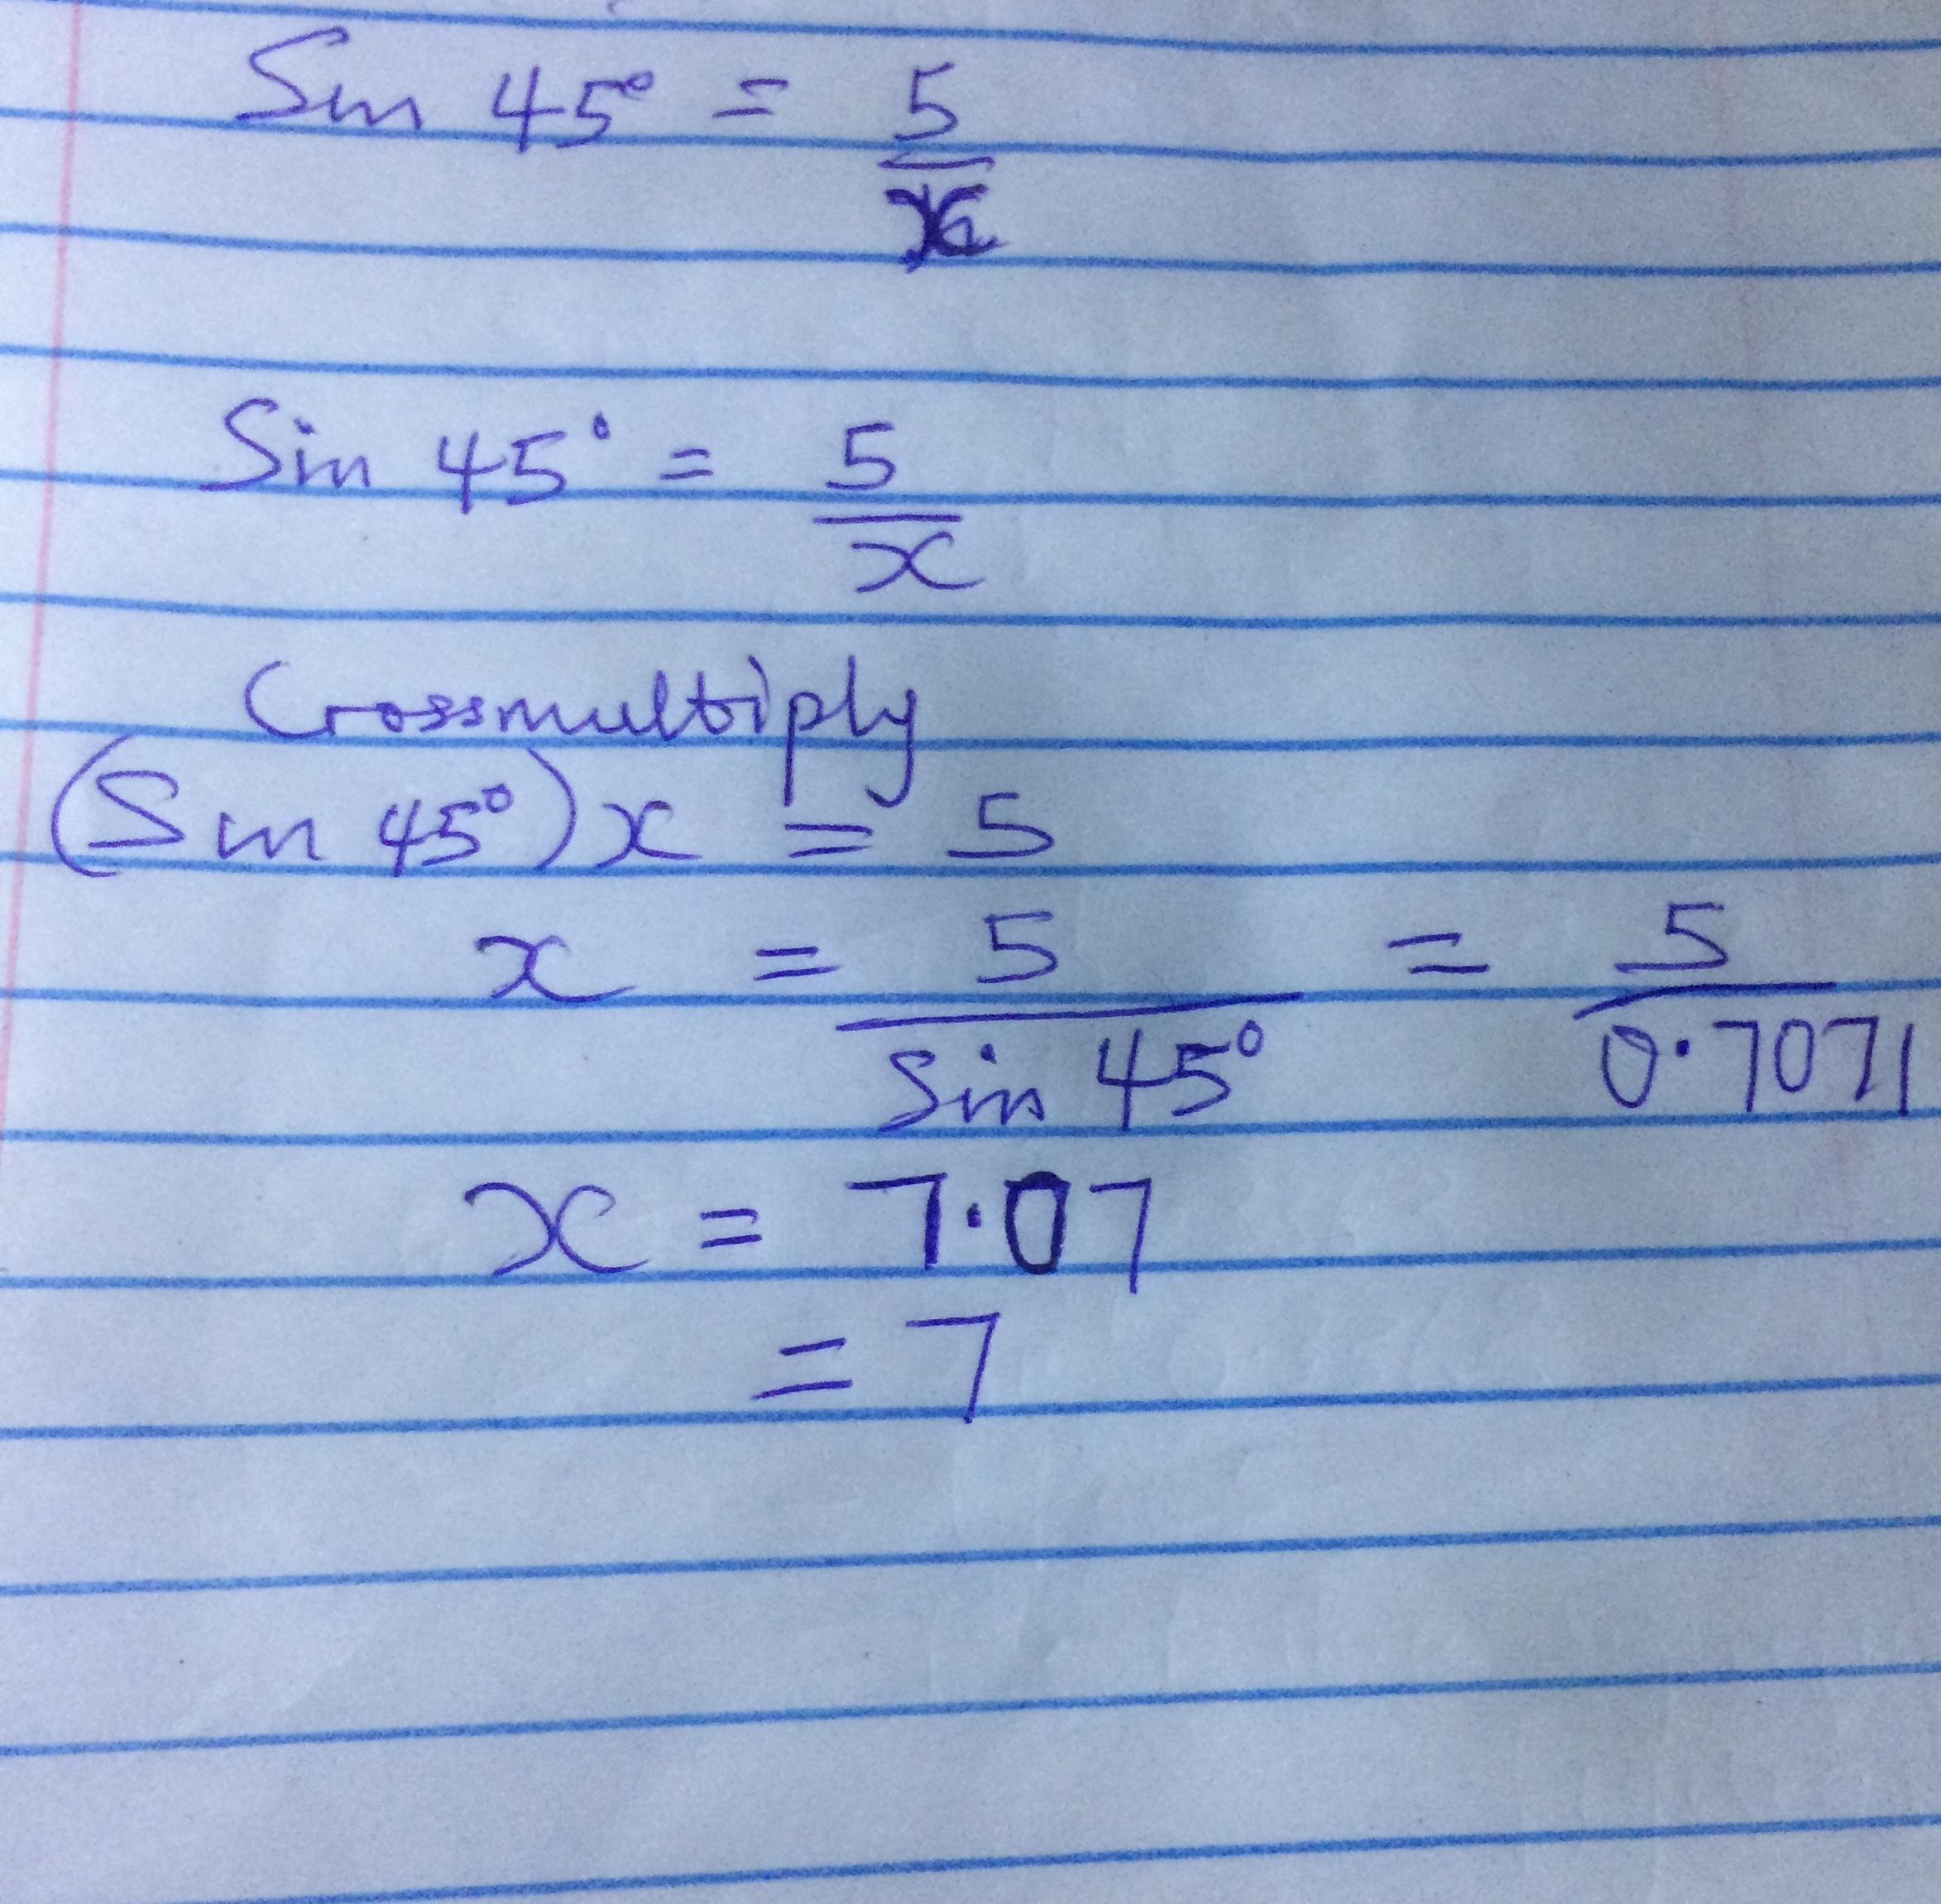 Sin 45° = 5/x
Sin 45° = 5/x
Crossmultiply
(Sin 45°)x = 5
x = 5/Sin 45° = 5/0.7071
x = 7.07
= 7